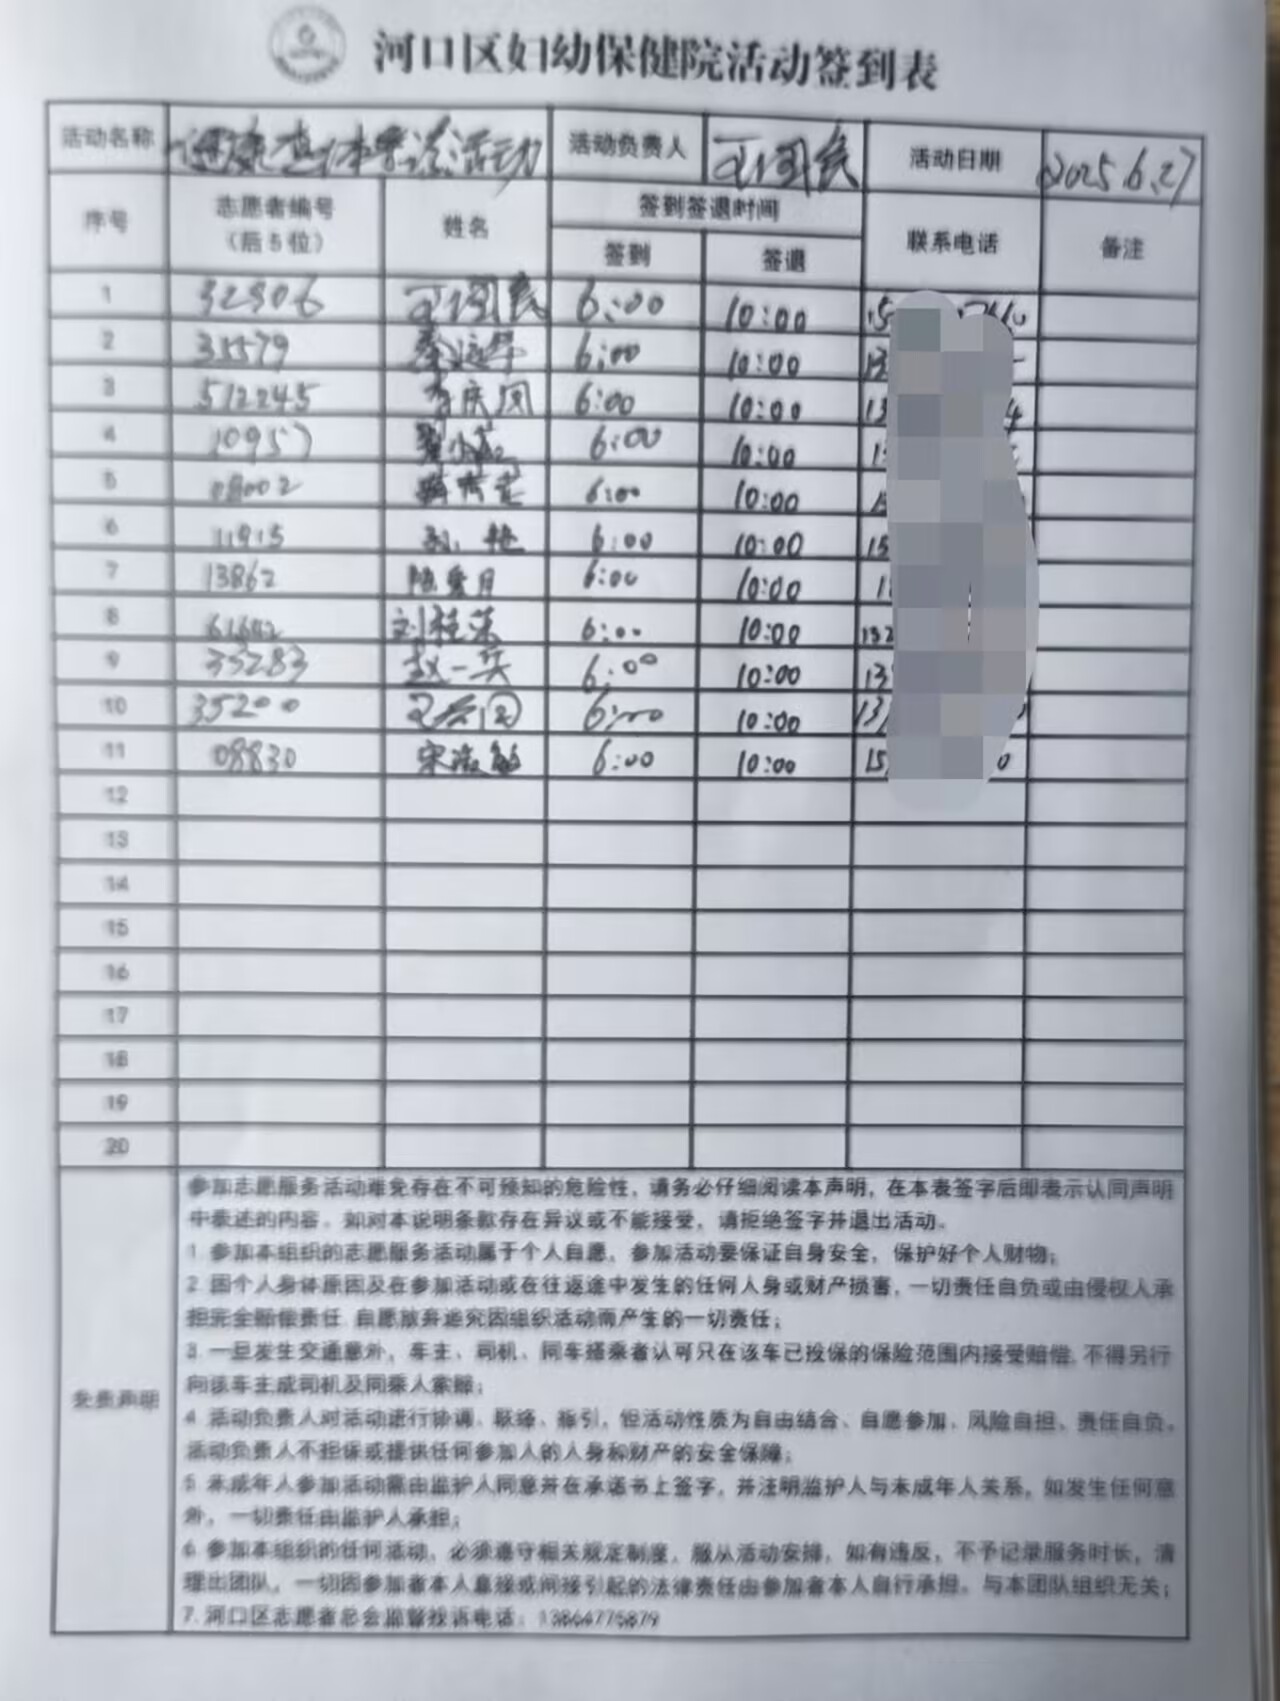 河口区妇幼保健院活动签到表
活动名称 健康查体义诊活动 活动负责人 活动日期 2025.6.27
序号 志愿者编号（后5位） 姓名 签到签退时间 联系电话 备注
签到 签退
1 32306 6:00 10:00
2 35579 6:00 10:00
3 512245 李庆闵 6:00 10:00
4 10957 6:00 10:00
5 08002 6:00 10:00
6 11915 孙艳 6:00 10:00
7 13862 陈爱月 6:00 10:00
8 61642 刘桂萍 6:00 10:00
9 35283 赵一兵 6:00 10:00
10 35200 6:00 10:00
11 08830 宋淑敏 6:00 10:00
12
13
14
15
16
17
18
19
20
免责声明
参加志愿服务活动难免存在不可预知的危险性，请务必仔细阅读本声明，在本表签字后即表示认同声明
中表述的内容。如对本说明条款存在异议或不能接受，请拒绝签字并退出活动。
1. 参加本组织的志愿服务活动属于个人自愿，参加活动要保证自身安全，保护好个人财物；
2. 因个人身体原因及在参加活动或在往返途中发生的任何人身或财产损害，一切责任自负或由侵权人承
担完全赔偿责任，自愿放弃追究因组织活动而产生的一切责任；
3. 一旦发生交通意外，车主、司机、同车搭乘者认可只在该车已投保的保险范围内接受赔偿，不得另行
向该车主或司机及同乘人索赔；
4. 活动负责人对活动进行协调、联络、指引，但活动性质为自由结合、自愿参加、风险自担、责任自负。
活动负责人不担保或提供任何参加人的人身和财产的安全保障；
5. 未成年人参加活动需由监护人同意并在承诺书上签字，并注明监护人与未成年人关系，如发生任何意
外，一切责任由监护人承担；
6. 参加本组织的任何活动，必须遵守相关规定制度，服从活动安排，如有违反，不予记录服务时长，清
理出团队，一切因参加者本人直接或间接引起的法律责任由参加者本人自行承担，与本团队组织无关；
7. 河口区志愿者总会监督投诉电话：13864775879